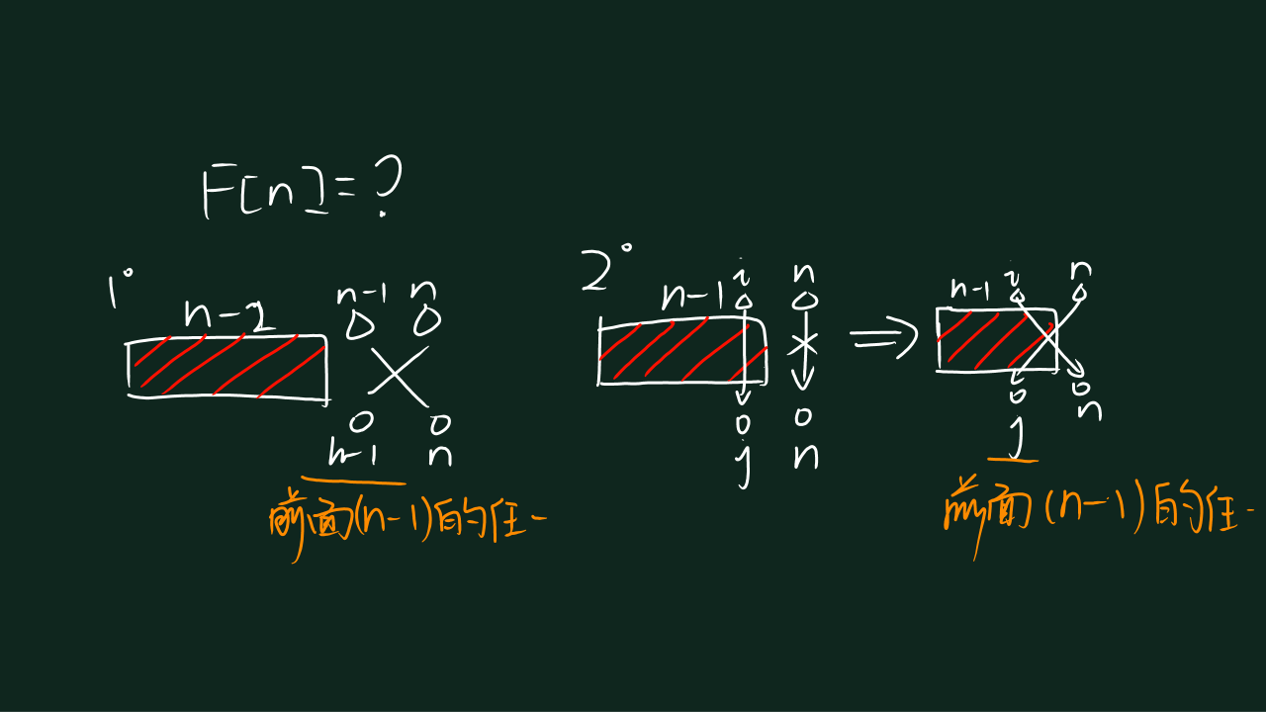 F[n]=?
1°
n-2
n-1 n
n-1 n
前面(n-1)的任一
2°
n-1 i n
j n
⇒
n-1 i n
j n
前面(n-1)的任一